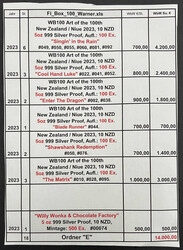 FI_Box_100_Warner.xls
WB100 Art of the 100th
New Zealand / Niue 2023, 10 NZD
5oz 999 Silver Proof, Aufl.: 100 Ex.
"Singin' in the Rain"
2023 6 #049, #050, #055, #060, #081, #092 700,00 4.200,00
WB100 Art of the 100th
New Zealand / Niue 2023, 10 NZD
5oz 999 Silver Proof, Aufl.: 100 Ex.
2023 3 "Cool Hand Luke" #022, #041, #052. 800,00 2.400,00
WB100 Art of the 100th
New Zealand / Niue 2023, 10 NZD
5oz 999 Silver Proof, Aufl.: 100 Ex.
2023 2 "Enter The Dragon" #002, #038. 900,00 1.800,00
WB100 Art of the 100th
New Zealand / Niue 2023, 10 NZD
5oz 999 Silver Proof, Aufl.: 100 Ex.
2023 1 "Blade Runner" #044. 700,00 700,00
WB100 Art of the 100th
New Zealand / Niue 2023, 10 NZD
5oz 999 Silver Proof, Aufl.: 100 Ex.
"Shawshank Redemption"
2023 2 #050, #076. 700,00 1.400,00
WB100 Art of the 100th
New Zealand / Niue 2023, 10 NZD
5oz 999 Silver Proof, Aufl.: 100 Ex.
2023 3 "The Matrix" #010, #028, #095. 1.000,00 3.000,00
"Willy Wonka & Chocolate Factory"
5 oz 999 Silver, 10 NZD,
2023 1 Mintage: 500 Ex. #00074 500,00 500,00
18 Ordner "E" 14.000,00